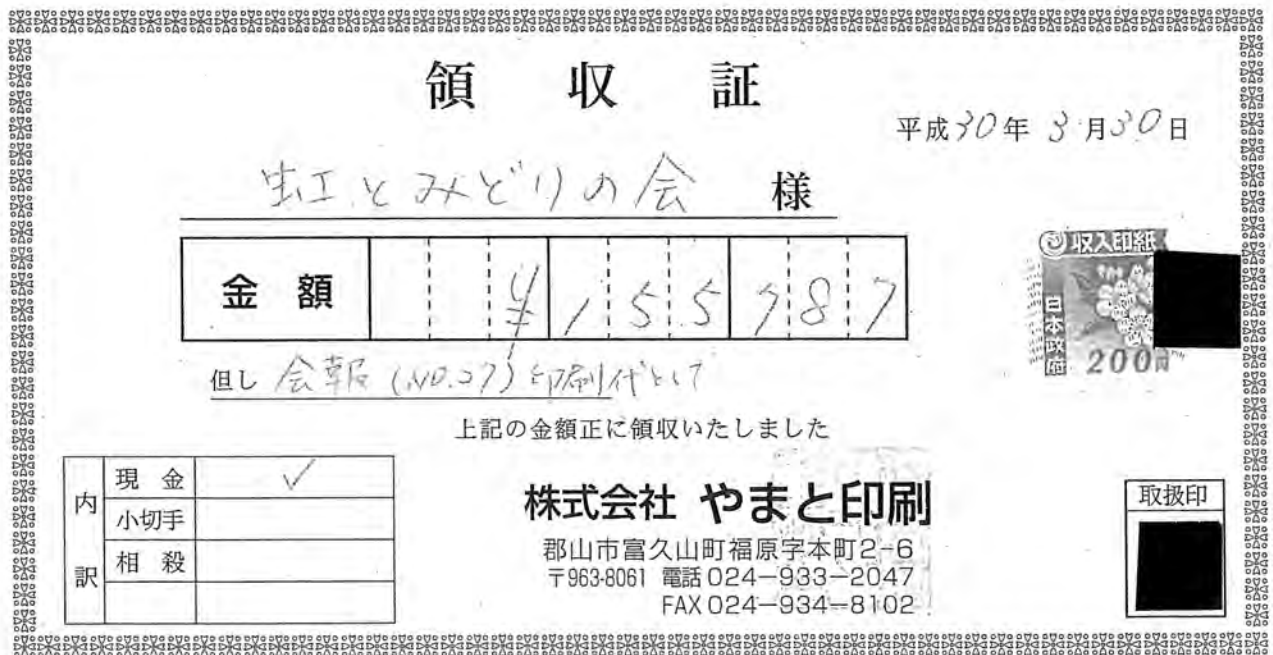 領収証
平成30年3月30日
虹とみどりの会 様
金額 ¥155787
但し 会報(NO.27)印刷代として
上記の金額正に領収いたしました
収入印紙
日本政府
200円
内訳
現金 ✓
小切手
相殺
株式会社 やまと印刷
郡山市富久山町福原字本町2-6
〒963-8061 電話024-933-2047
FAX 024-934-8102
取扱印